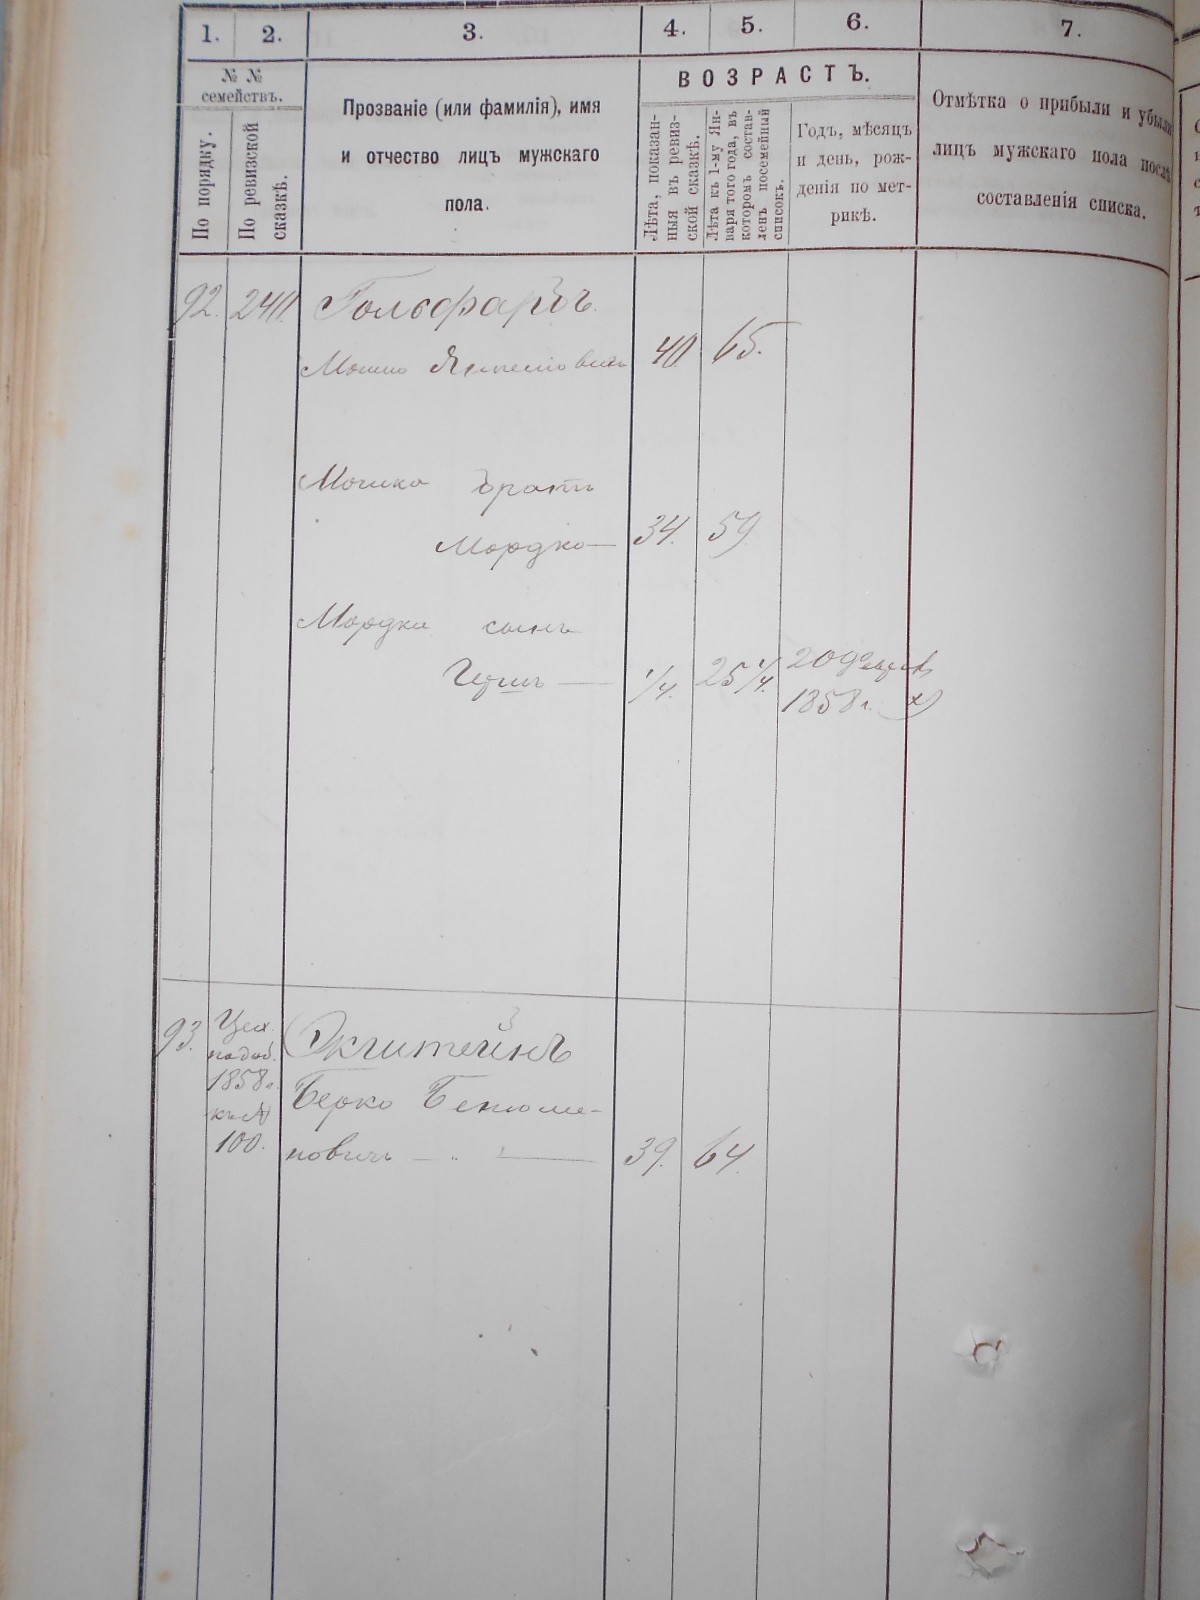 1. 2. 3. 4. 5. 6. 7.
№ №
семействъ.
По порядку.
По ревизской
сказкѣ.
Прозваніе (или фамилія), имя
и отчество лицъ мужскаго
пола.
ВОЗРАСТЪ.
Лѣта, показан-
ныя въ ревиз-
ской сказкѣ.
Лѣта къ 1-му Ян-
варя того года, въ
которомъ состав-
ленъ посемейный
списокъ.
Годъ, мѣсяцъ
и день, рож-
денія по мет-
рикѣ.
Отмѣтка о прибыли и убыли
лицъ мужскаго пола послѣ
составленія списка.
92. 240.
Мошко 40. 65.
Мошка братъ
Мордко 34. 59
Мордки сынъ
Гершъ 1/4. 25 1/4. 20
1858 г.
93. Цех. Экштейнъ
1858 г. Берко Бенюми-
100. новичъ 39. 64.